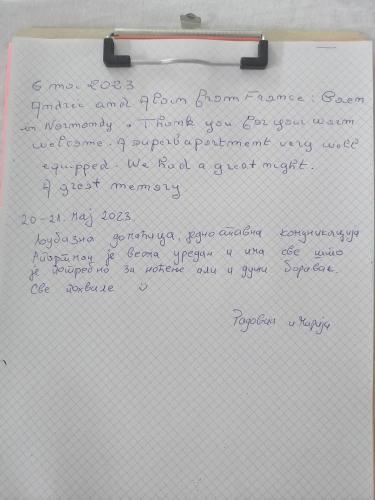 6 mai 2023
Andree and Alain from France : Caen
in Normandy. Thank you for your warm
welcome. A superb apartment very well
equipped. We had a great night.
A great memory
20-21. мај 2023.
Љубазна домаћица, једноставна комуникација
Апартман је веома уредан и има све што
је потребно за ноћење али и дужи боравак.
Све похвале
Радован и Марија